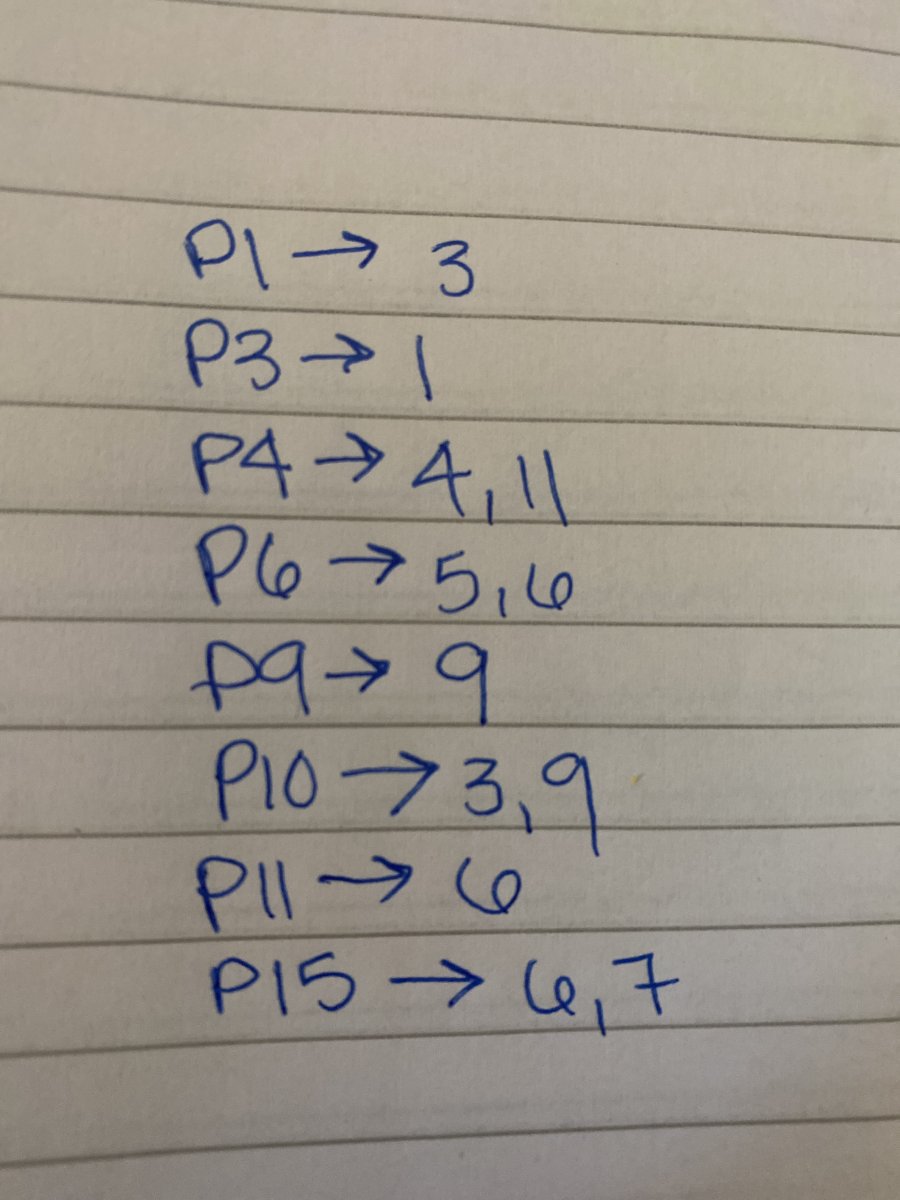 P1 → 3
P3 → 1
P4 → 4,11
P6 → 5,6
P9 → 9
P10 → 3,9
P11 → 6
P15 → 6,7